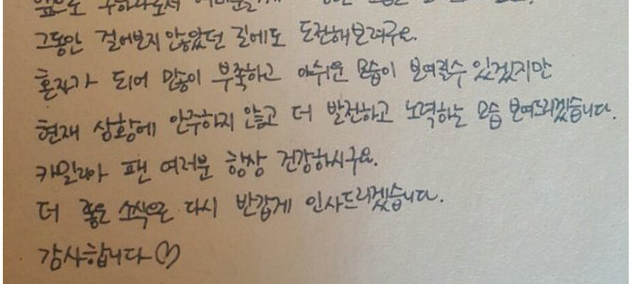 앞으로 구하라로서 여러분들께
그동안 걸어보지 않았던 길에도 도전해보려구요.
혼자가 되어 많이 부족하고 아쉬운 모습이 보여질수 있겠지만
현재 상황에 안주하지 않고 더 발전하고 노력하는 모습 보여드리겠습니다.
카밀리아 팬 여러분 항상 건강하시구요.
더 좋은 소식으로 다시 반갑게 인사드리겠습니다.
감사합니다♡